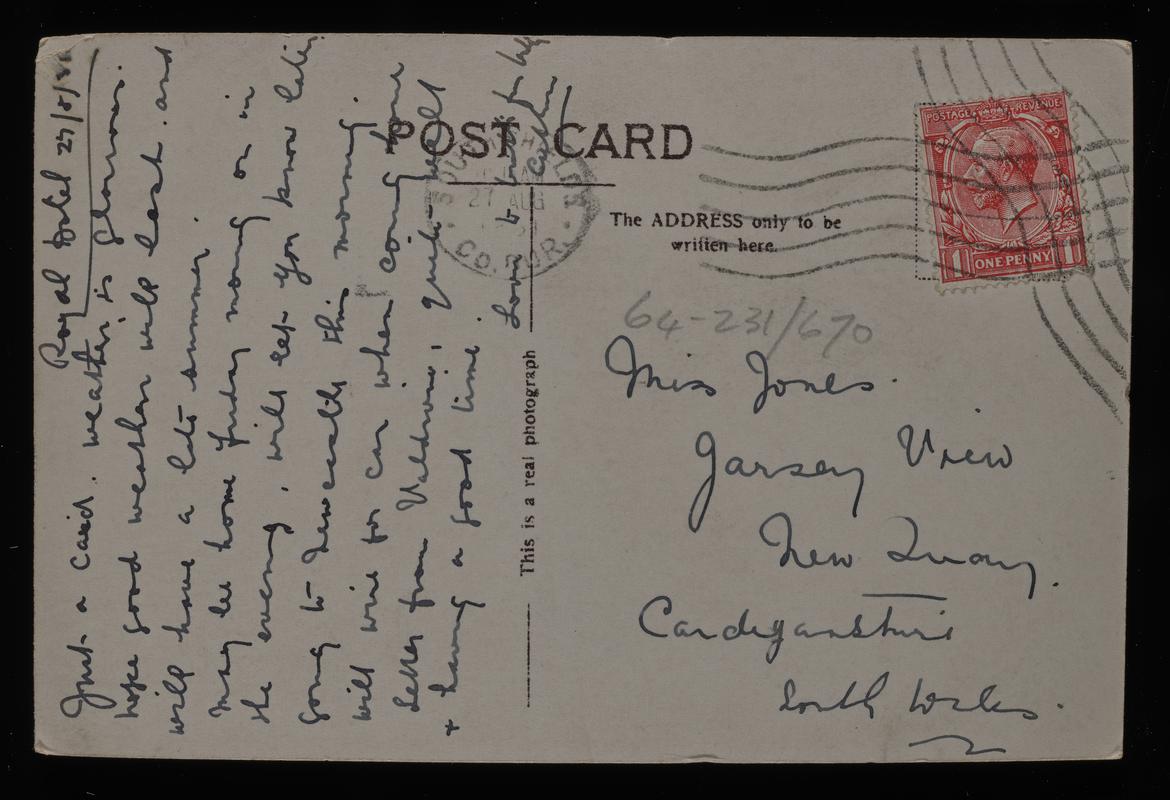 Royal Hotel 27/8/
Just a card. weather is glorious.
hope good weather will last. and
will have a late summer.
may be home friday morng or in
the evening, will let you know later.
Going to Newcastle this morning.
will wire for car when coming home
letter from Valdrina, quite well
& having a good time.
Love to
POST CARD
SOUTH SHIELDS
27 AUG
CO. DUR.
The ADDRESS only to be
written here.
This is a real photograph
POSTAGE REVENUE
1 ONE PENNY 1
64-231/670
Miss Jones.
Jarsey View
New Quay.
Cardiganshire
South Wales.